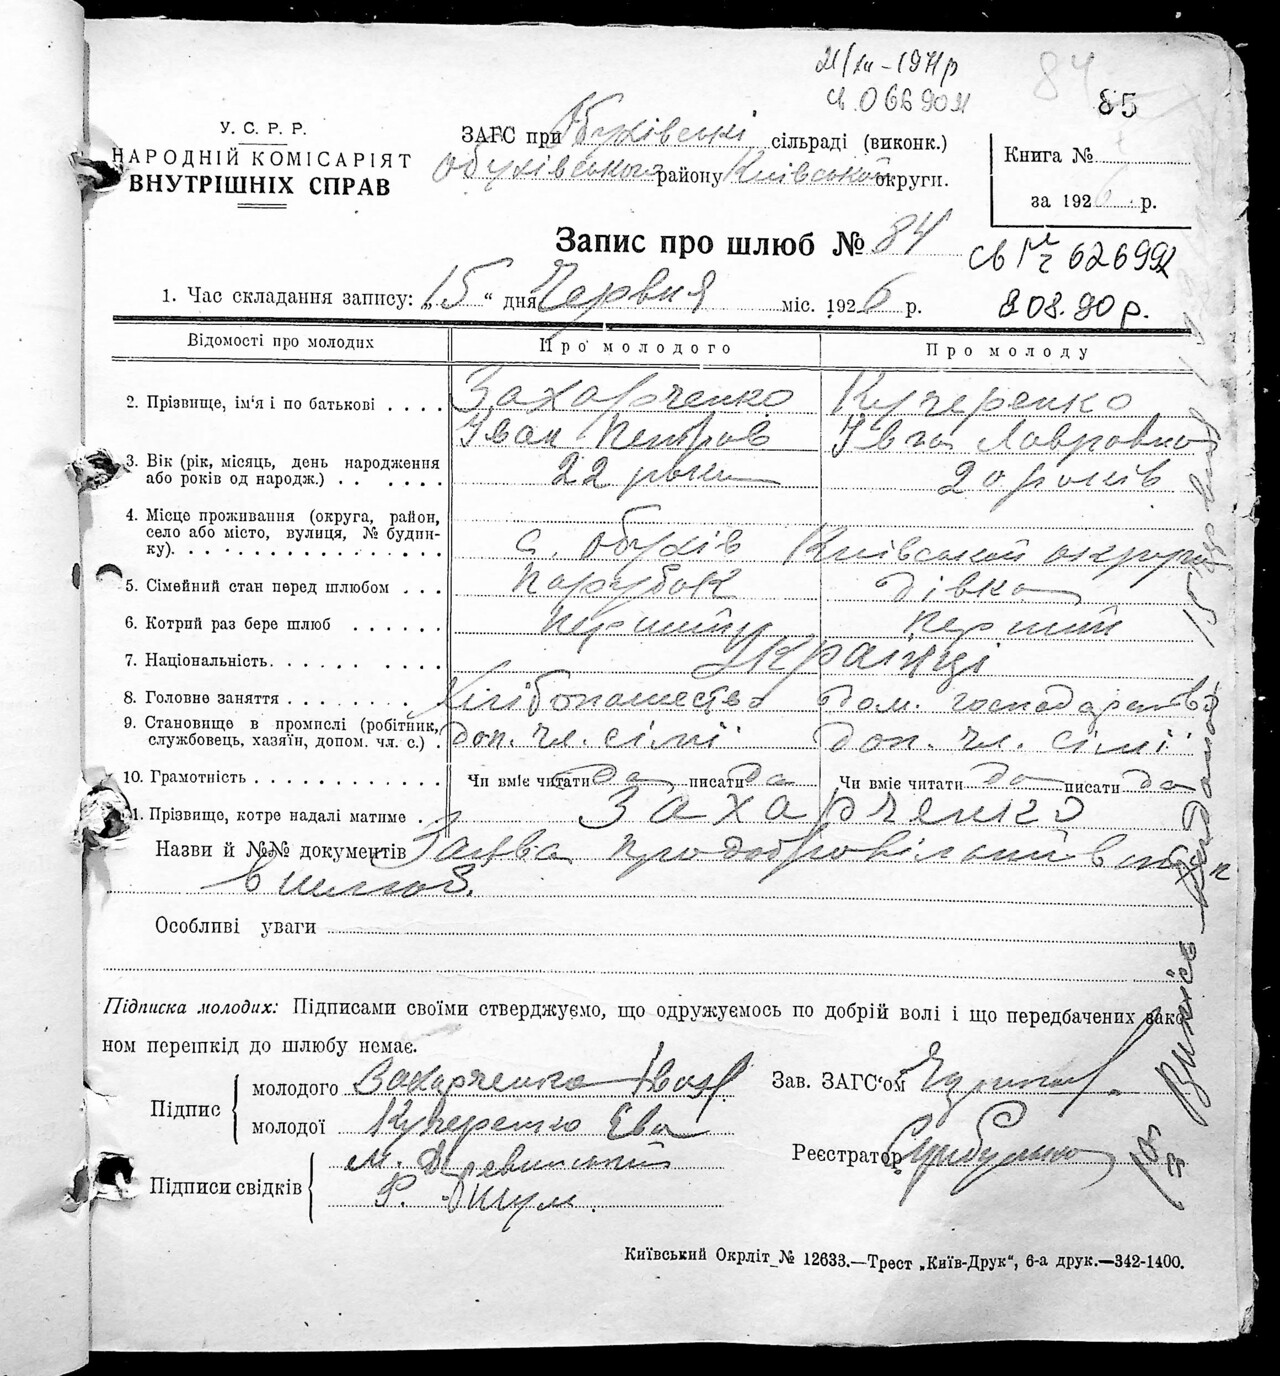 21/XII-1971р
св. 066901
84
85
У. С. Р. Р.
НАРОДНІЙ КОМІСАРІЯТ
ВНУТРІШНІХ СПРАВ
ЗАГС при Обухівські сільраді (виконк.)
Обухівського району Київської округи.
Книга №
за 1926 р.
Запис про шлюб № 84
808.90 р.
1. Час складання запису: „15“ дня Червня міс. 1926 р.
Відомості про молодих
Про молодого
Про молоду
2. Прізвище, ім'я і по батькові . . . .
Захарченко
Іван Петров
Кучеренко
Івга Лавровна
3. Вік (рік, місяць, день народження
або років од народж.) . . . . . .
22 роки
20 років
4. Місце проживання (округа, район,
село або місто, вулиця, № будин-
ку). . . . . . . . . . . . . . . .
с. Обухів Київської округи
5. Сімейний стан перед шлюбом . . .
Парубок
дівка
6. Котрий раз бере шлюб . . . . . .
Перший
Перший
7. Національність. . . . . . . . . .
Українці
8. Головне заняття . . . . . . . . .
Хлібопашество
дом. господарство
9. Становище в промислі (робітник,
службовець, хазяїн, допом. чл. с.) .
доп. чл. сімї
доп. чл. сімї
10. Грамотність . . . . . . . . . . .
Чи вміє читати да писати да
Чи вміє читати да писати да
11. Прізвище, котре надалі матиме . .
Захарченко
Назви й №№ документів Заява про добровільний вступ
в шлюб.
Особливі уваги
Підписка молодих: Підписами своїми стверджуємо, що одружуємось по добрій волі і що передбачених зако-
ном перешкід до шлюбу немає.
Підпис
молодого Захарченко Іван
молодої Кучеренко Ева
Зав. ЗАГС'ом
Реєстратор
Підписи свідків
М.
Ф. Шум
Випись видано 15
Київський Окрліт № 12633.—Трест „Київ-Друк“, 6-а друк.—342-1400.